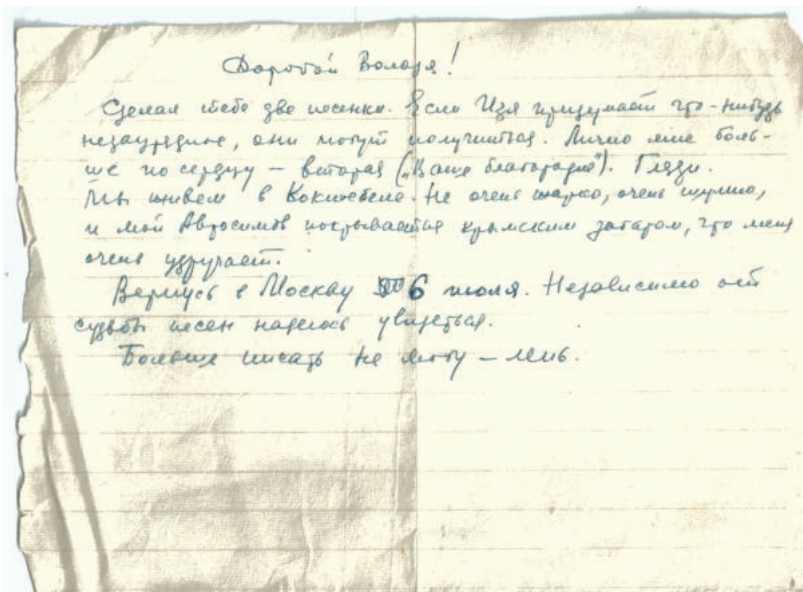 Дорогой Володя!
Сделал тебе две песенки. Если Изя придумает что-нибудь
незаурядное, они могут получиться. Лично мне боль-
ше по сердцу – вторая („Ваше благородие"). Гляди.
Мы живем в Коктебеле. Не очень жарко, очень шумно,
и мой Авросимов покрывается крымским загаром, что меня
очень удручает.
Вернусь в Москву 6 июля. Независимо от
судьбы песен надеюсь увидеться.
Больше писать не могу – лень.